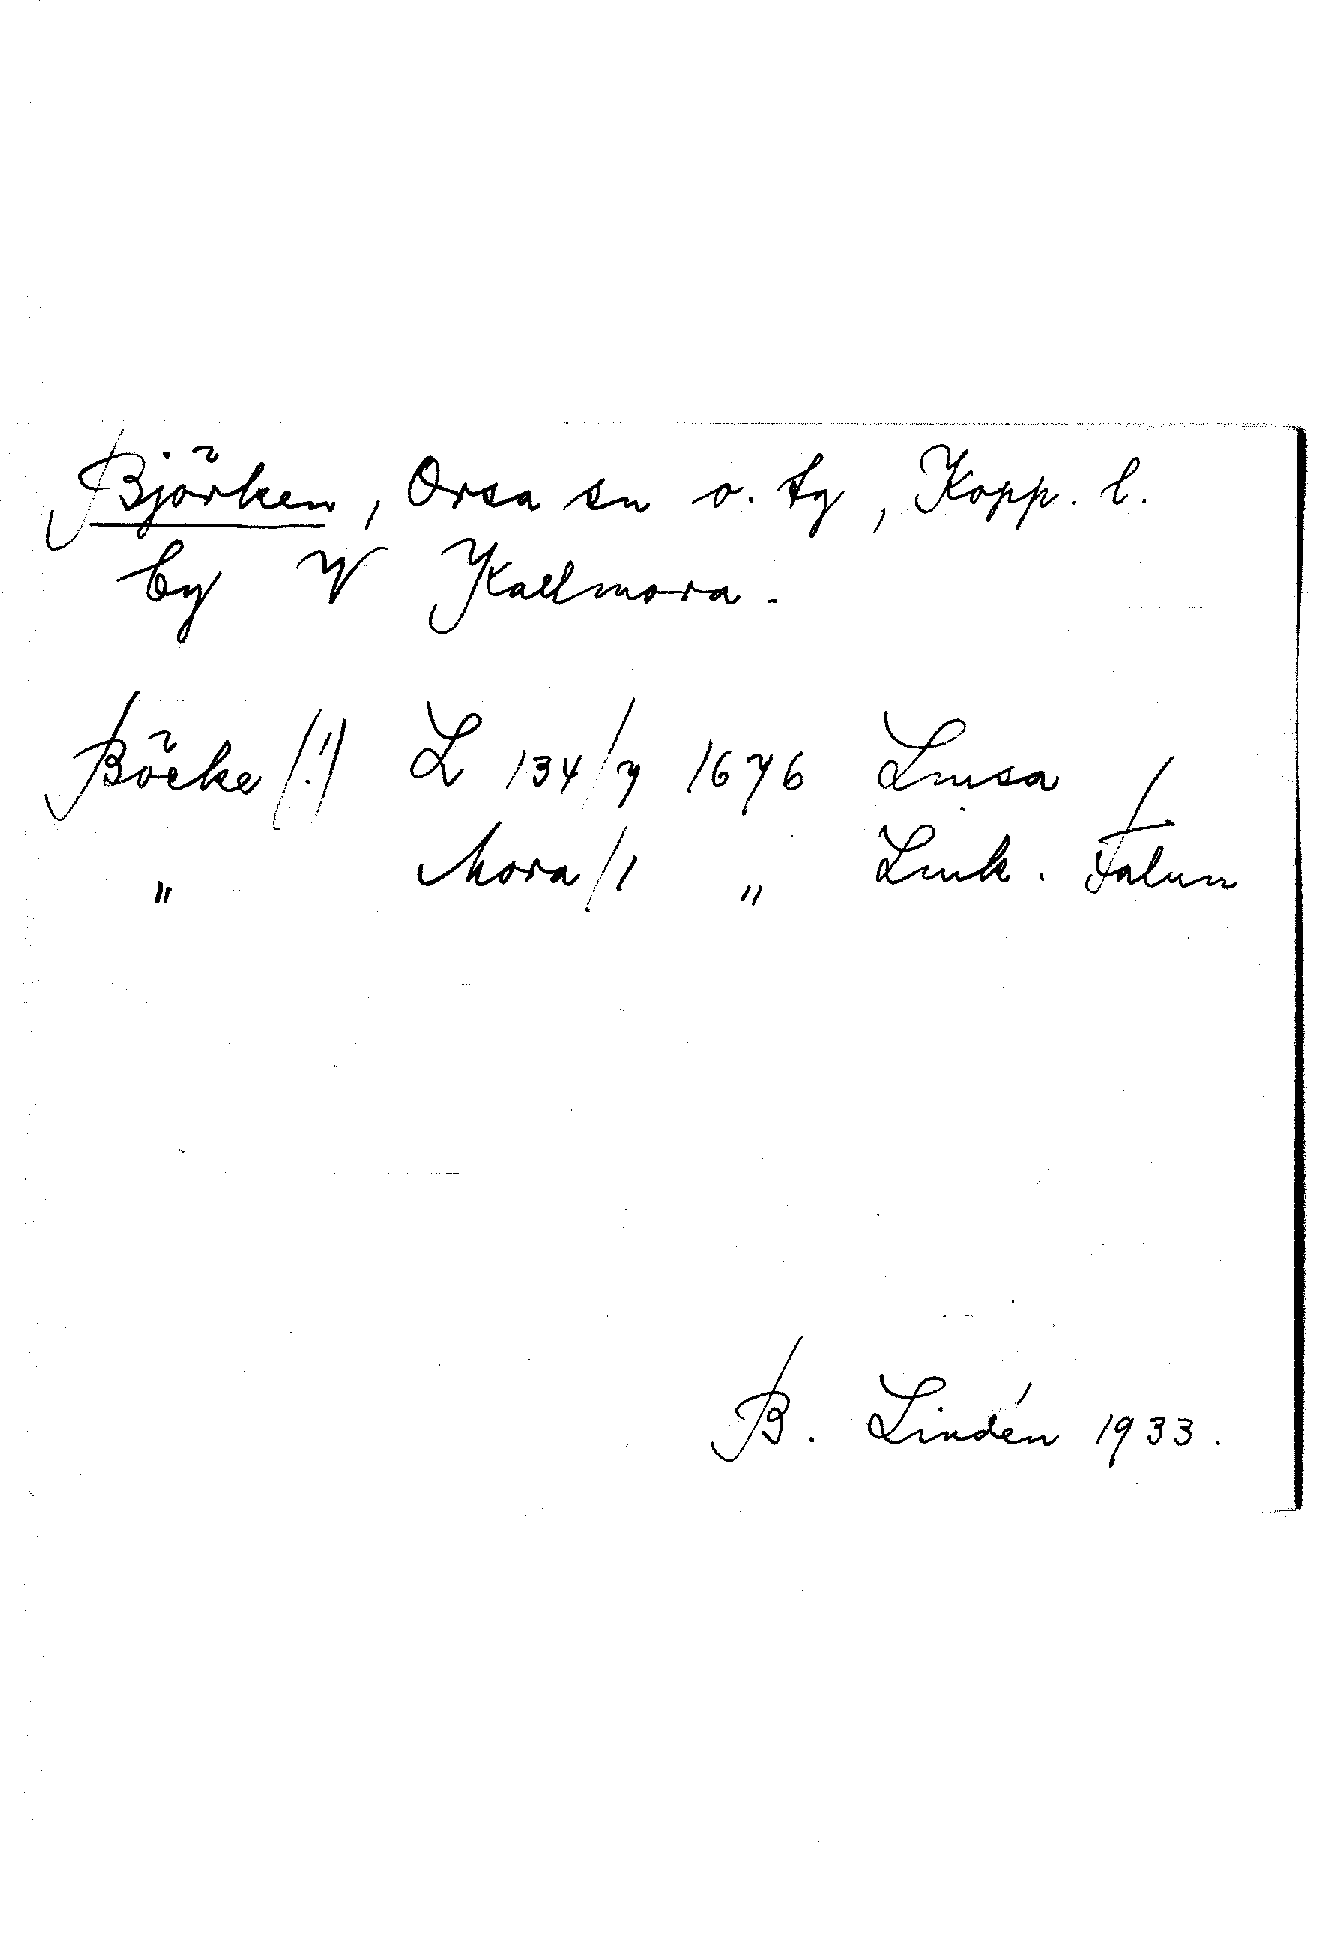 Björken, Orsa sn o. tg, Kopp. l.
by V Kallmora.
Böcke (!) L 134/7 1676 Lmsa
„ Mora/1 „ Lmk. Falun
B. Lindén 1933.